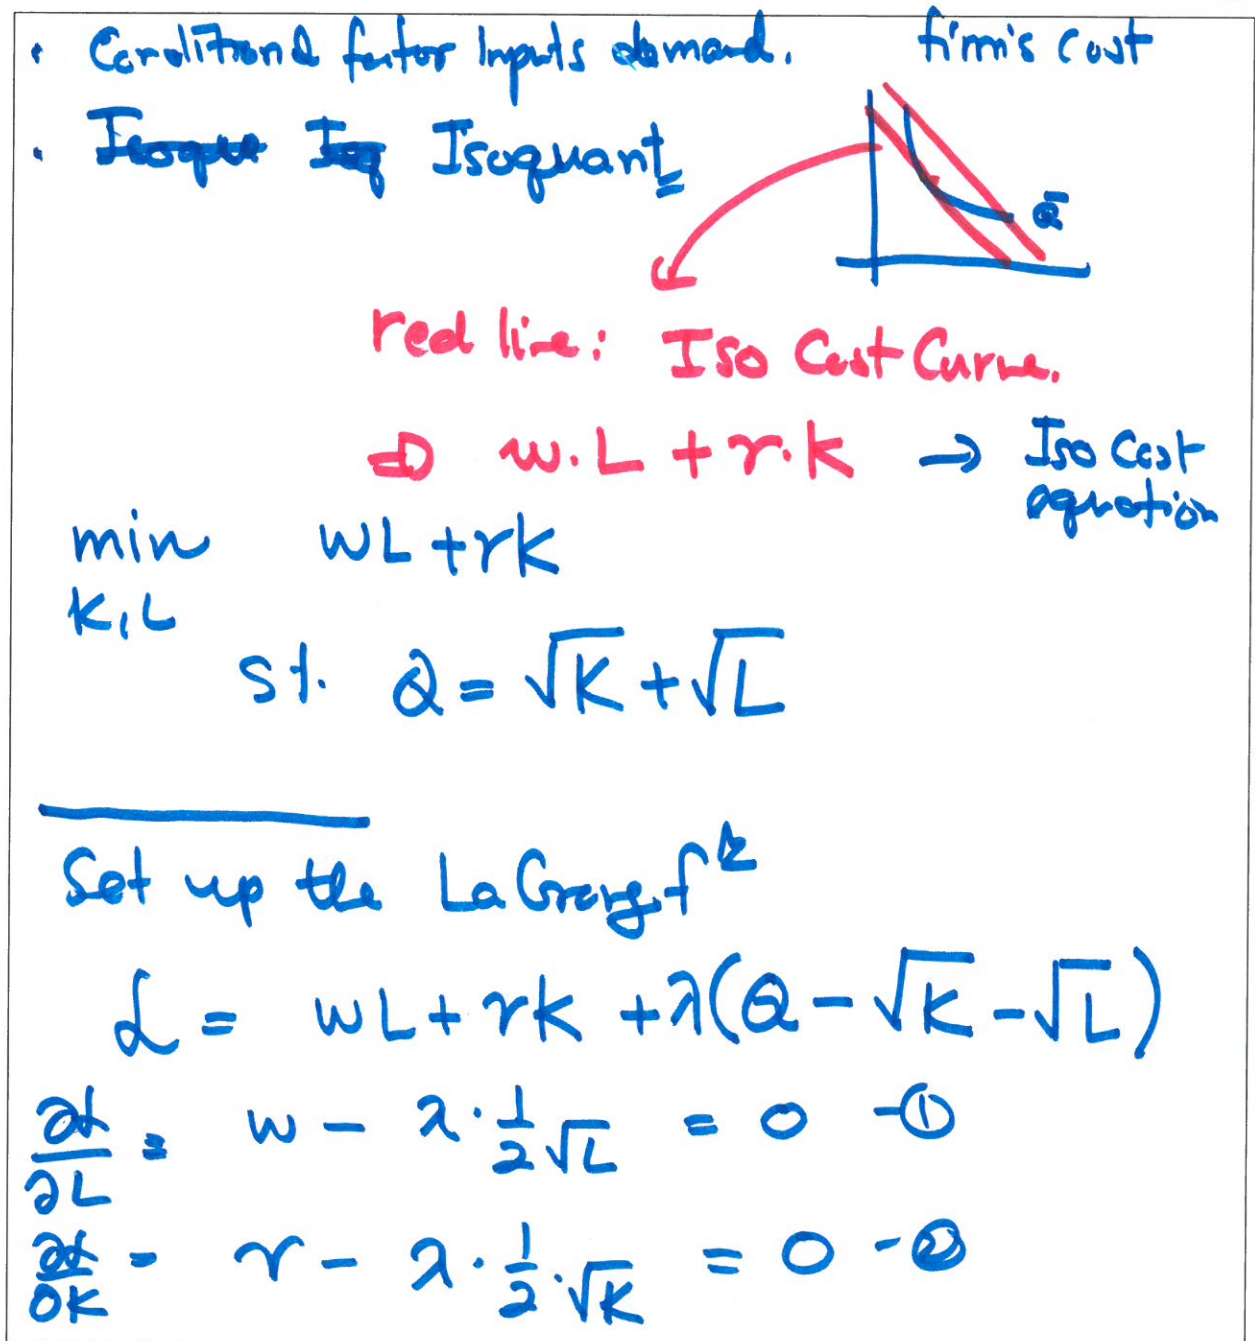 · Conditional factor Inputs demand. firm's cost
· Isoquant
Q̄
red line: Iso Cost Curve.
⇒ w.L + r.K → Iso Cost equation
min wL + rK
K, L
st. Q = √K + √L
Set up the LaGrang. fⁿ
ℒ = wL + rK + λ(Q - √K - √L)
∂ℒ/∂L = w - λ · 1/2√L = 0 -①
∂ℒ/∂K = r - λ · 1/2·√K = 0 -②